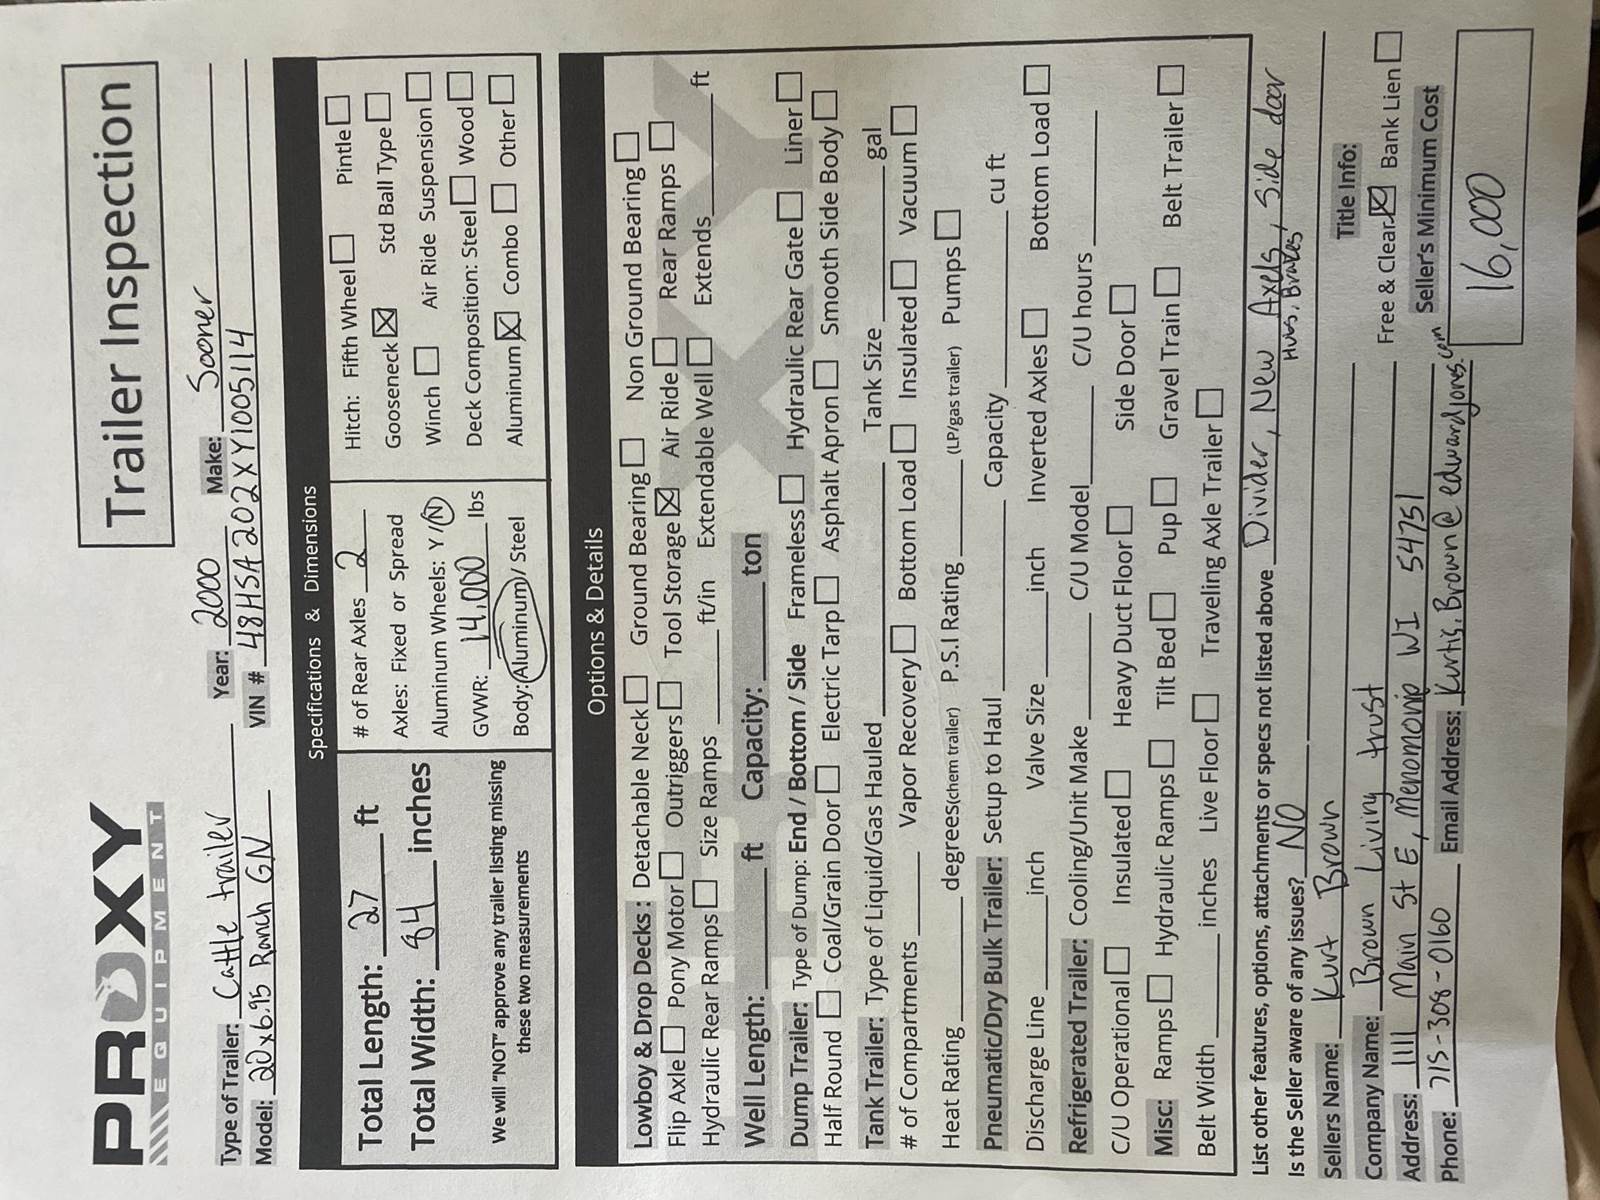 PROXY
EQUIPMENT
Trailer Inspection
Type of Trailer: Cattle trailer Year: 2000 Make: Sooner
Model: 20x6.95 Ranch GN VIN # 48HSA202XY1005114
Specifications & Dimensions
Total Length: 27 ft
Total Width: 84 inches
We will "NOT" approve any trailer listing missing
these two measurements
# of Rear Axles 2
Axles: Fixed or Spread
Aluminum Wheels: Y / N
GVWR: 14,000 lbs
Body: Aluminum / Steel
Hitch: Fifth Wheel ☐ Pintle ☐
Gooseneck ☒ Std Ball Type ☐
Winch ☐ Air Ride Suspension ☐
Deck Composition: Steel ☐ Wood ☐
Aluminum ☒ Combo ☐ Other ☐
Options & Details
Lowboy & Drop Decks : Detachable Neck ☐ Ground Bearing ☐ Non Ground Bearing ☐
Flip Axle ☐ Pony Motor ☐ Outriggers ☐ Tool Storage ☒ Air Ride ☐ Rear Ramps ☐
Hydraulic Rear Ramps ☐ Size Ramps ____ ft/in Extendable Well ☐ Extends ____ ft
Well Length: ____ ft Capacity: ____ ton
Dump Trailer: Type of Dump: End / Bottom / Side Frameless ☐ Hydraulic Rear Gate ☐ Liner ☐
Half Round ☐ Coal/Grain Door ☐ Electric Tarp ☐ Asphalt Apron ☐ Smooth Side Body ☐
Tank Trailer: Type of Liquid/Gas Hauled ____ Tank Size ____ gal
# of Compartments ____ Vapor Recovery ☐ Bottom Load ☐ Insulated ☐ Vacuum ☐
Heat Rating ____ degrees(chem trailer) P.S.I Rating ____ (LP/gas trailer) Pumps ☐
Pneumatic/Dry Bulk Trailer: Setup to Haul ____ Capacity ____ cu ft
Discharge Line ____ inch Valve Size ____ inch Inverted Axles ☐ Bottom Load ☐
Refrigerated Trailer: Cooling/Unit Make ____ C/U Model ____ C/U hours ____
C/U Operational ☐ Insulated ☐ Heavy Duct Floor ☐ Side Door ☐
Misc: Ramps ☐ Hydraulic Ramps ☐ Tilt Bed ☐ Pup ☐ Gravel Train ☐ Belt Trailer ☐
Belt Width ____ inches Live Floor ☐ Traveling Axle Trailer ☐
List other features, options, attachments or specs not listed above Divider, New Axels, Side door
Hubs, Brakes
Is the Seller aware of any issues? NO
Sellers Name: Kurt Brown
Company Name: Brown Living trust
Address: 1111 Main St E, Menomonie WI 54751
Phone: 715-308-0160 Email Address: Kurtis.Brown@edwardjones.com
Title Info:
Free & Clear ☒ Bank Lien ☐
Seller's Minimum Cost
16,000